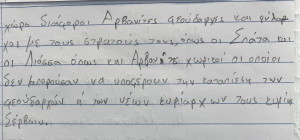 χώρο διάφοροι Αρβανίτες φεουδάρχες και φύλαρ
χοι με τους στρατούς τους, όπως οι Σπάτα και
οι Λιόσα όπως και Αρβανίτες χωρικοί οι οποίοι
δεν μπορούσαν να υποφέρουν την καταπίεση των
φεουδαρχών ή των νέων κυρίαρχων τους κυρίως
Σέρβων.